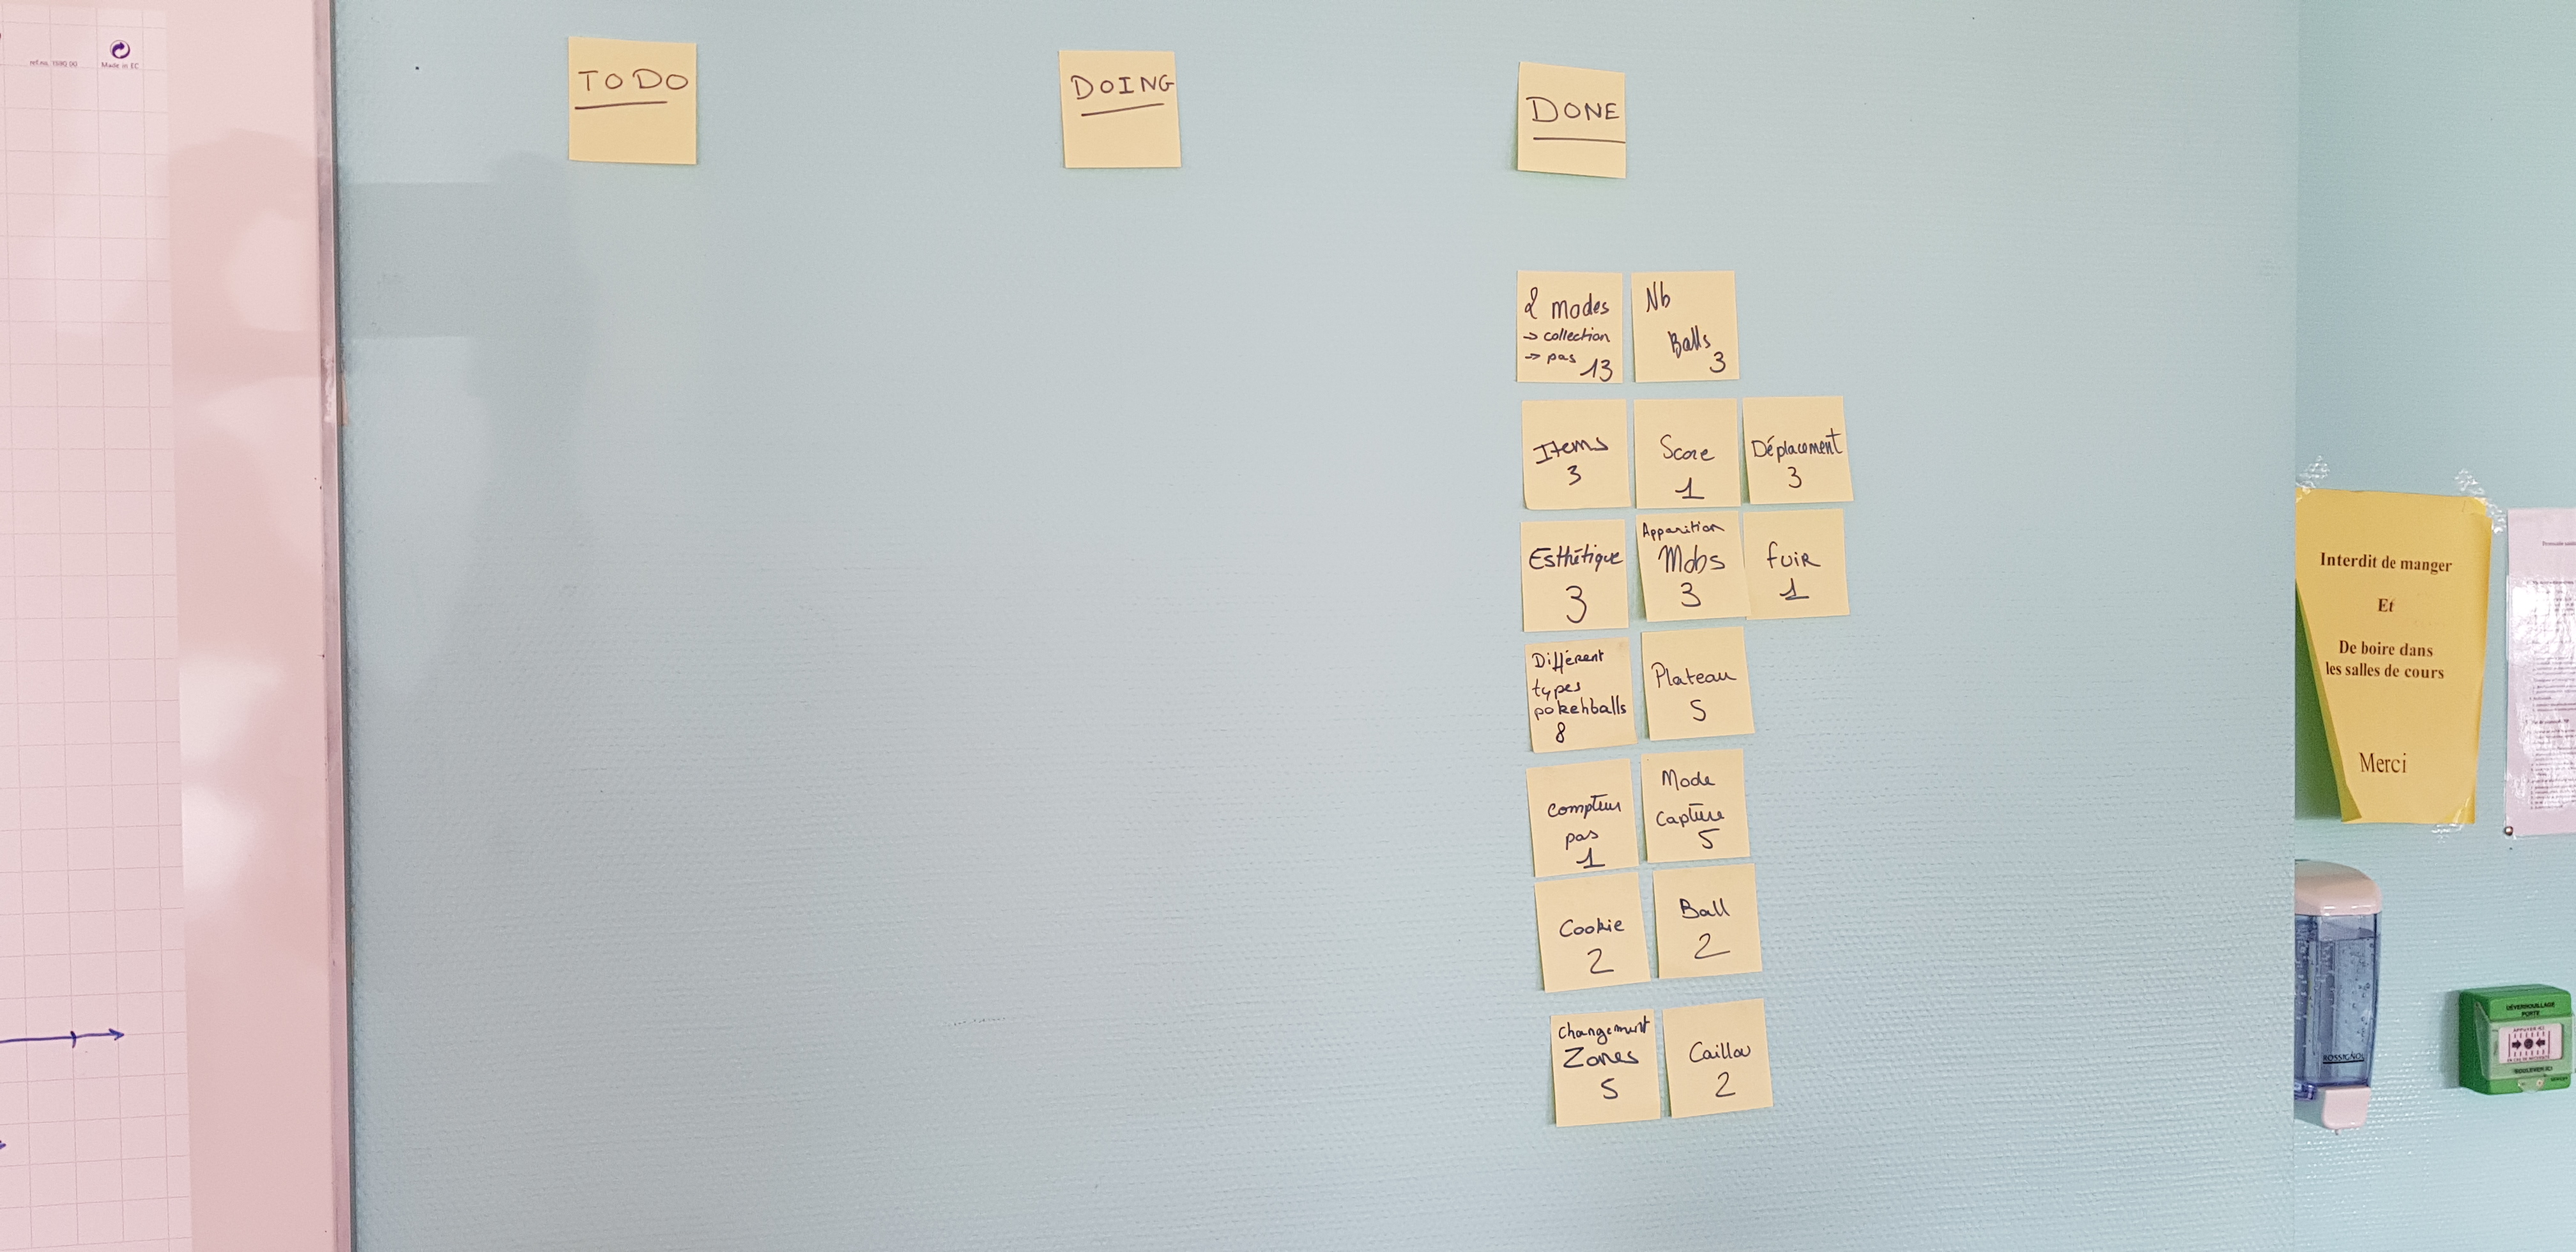 Made in EC
TO DO
DOING
DONE
2 modes
→ collection
→ pas 13
Nb
Balls
3
Items
3
Score
1
Déplacement
3
Esthétique
3
Apparition
Mobs
3
fuir
1
Différent
types
pokehballs
8
Plateau
5
Compteur
pas
1
Mode
Capture
5
Cookie
2
Ball
2
Changement
Zones
5
Caillou
2
Interdit de manger
Et
De boire dans
les salles de cours
Merci
ROSSIGNOL
DÉVERROUILLAGE
PORTE
APPUYER ICI